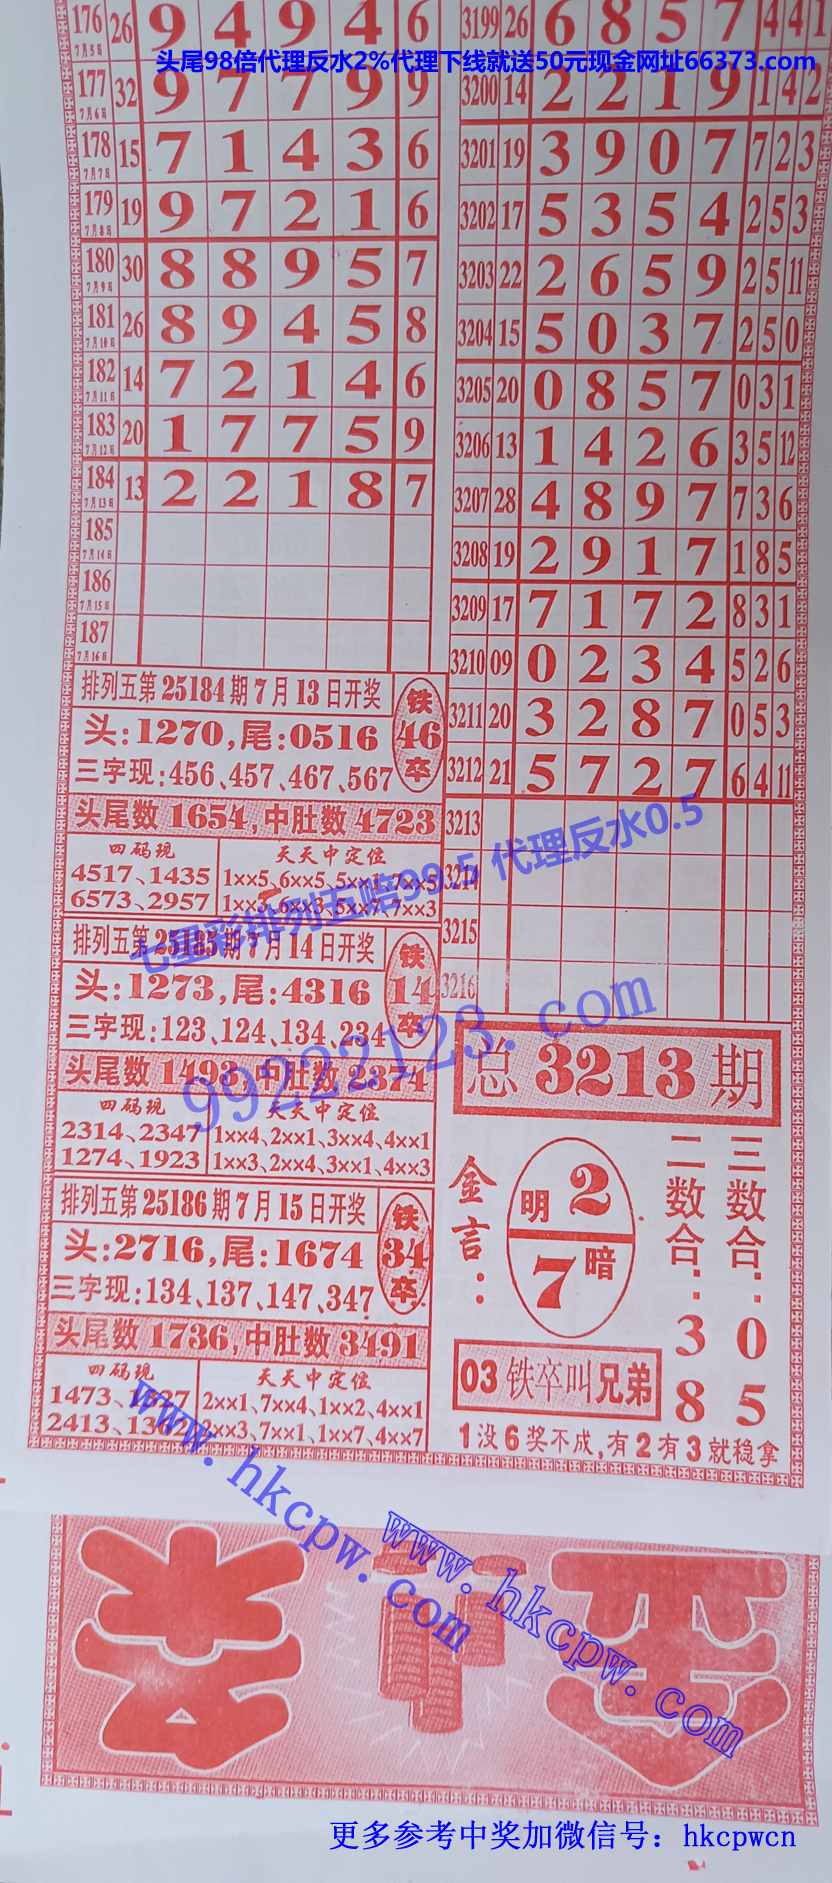 176 7月5日 26 9 4 9 4 6
头尾98倍代理反水2%代理下线就送50元现金网址66373.com
177 7月6日 32 9 7 7 9 9
178 7月7日 15 7 1 4 3 6
179 7月8日 19 9 7 2 1 6
180 7月9日 30 8 8 9 5 7
181 7月10日 26 8 9 4 5 8
182 7月11日 14 7 2 1 4 6
183 7月12日 20 1 7 7 5 9
184 7月13日 13 2 2 1 8 7
185 7月14日
186 7月15日
187 7月16日
排列五第25184期7月13日开奖
铁 46 卒
头:1270,尾:0516
三字现:456、457、467、567
头尾数1654,中肚数4723
四码现
4517、1435
6573、2957
天天中定位
1××5、6××5、5××3、7××5
1××3、6××3、5××7、7××3
排列五第25185期7月14日开奖
铁 14 卒
头:1273,尾:4316
三字现:123、124、134、234
头尾数1493,中肚数2374
四码现
2314、2347
1274、1923
天天中定位
1××4、2××1、3××4、4××1
1××3、2××4、3××1、4××3
排列五第25186期7月15日开奖
铁 34 卒
头:2716,尾:1674
三字现:134、137、147、347
头尾数1736,中肚数3491
四码现
1473、1627
2413、1362
天天中定位
2××1、7××4、1××2、4××1
2××3、7××1、1××7、4××7
3199 26 6 8 5 7 4 4 1
3200 14 2 2 1 9 1 4 2
3201 19 3 9 0 7 7 2 3
3202 17 5 3 5 4 2 5 3
3203 22 2 6 5 9 2 5 11
3204 15 5 0 3 7 2 5 0
3205 20 0 8 5 7 0 3 1
3206 13 1 4 2 6 3 5 12
3207 28 4 8 9 7 7 3 6
3208 19 2 9 1 7 1 8 5
3209 17 7 1 7 2 8 3 1
3210 09 0 2 3 4 5 2 6
3211 20 3 2 8 7 0 5 3
3212 21 5 7 2 7 6 4 11
3213
3214
3215
3216
总3213期
金言:
明2
7暗
二数合:38
三数合:05
03铁卒叫兄弟
1没6奖不成,有2有3就稳拿
七星彩排列五赔99.5 代理反水0.5
99222123.com
www.hkcpw.com
www.hkcpw.com
更多参考中奖加微信号：hkcpwcn